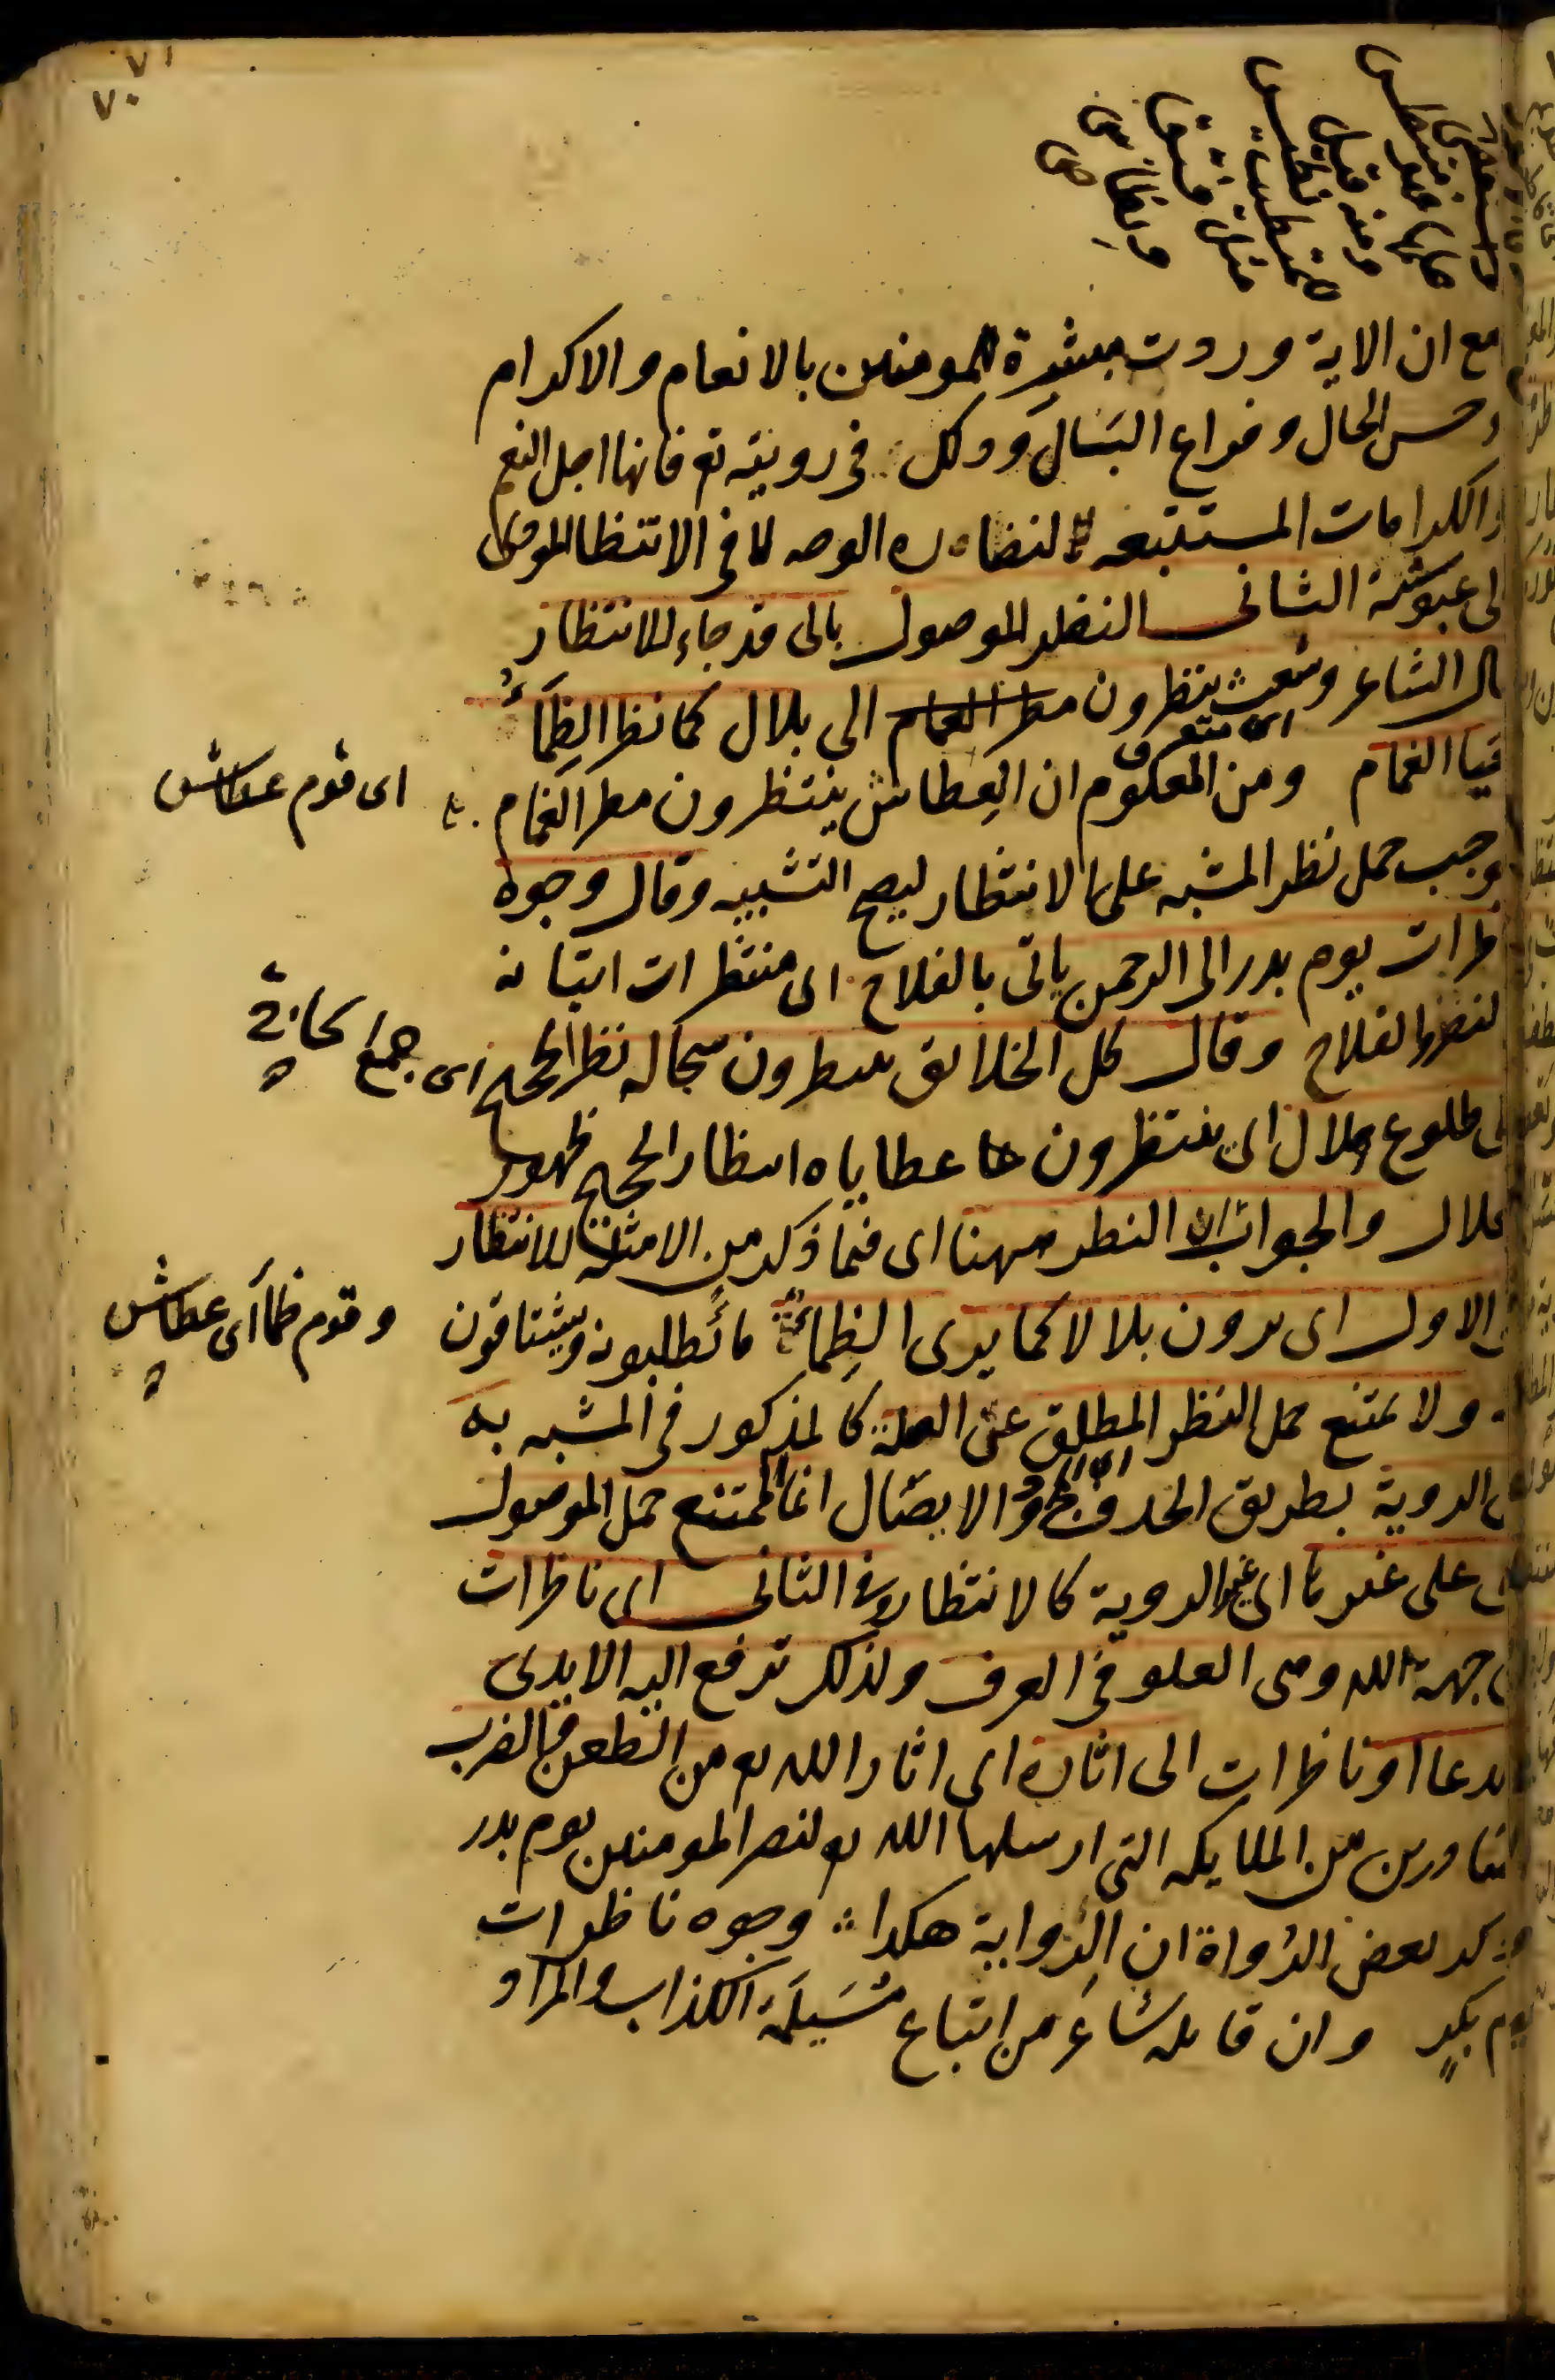 ٧١
٧٠
مع ان الاية وردت مبشرة للمومنين بالانعام والاكرام
وحسن الحال وفراغ البال وذلك في رويته تع فانها اجل النعم
والكرامات المستتبعه لنضارة الوجه لا في الانتظار المودى
الى عبوسته الثانى النظر الموصول بالى قد جاء للانتظار
قال الشاعر وشعث ينظرون الى بلال كما نظر الظماء
حيا الغمام ومن المعلوم ان العطاش ينتظرون مطر الغمام
فوجب حمل نظر المشبه على الانتظار ليصح التشبيه وقال وجوه
ناظرات يوم بدر الى الرحمن ياتى بالفلاح اى منتظرات اتيانه
بالنصر والفلاح وقال كل الخلائق ينظرون سجاله نظر الحجيج
الى طلوع هلال اى ينتظرون عطاياه انتظار الحجيج ظهور
الهلال والجواب ان النظر ههنا اى فيما ذكر من الامثلة للانتظار
الاول اى يرون بلالا كما يرى الظماء ماء يطلبونه ويشتاقون
ولا يمتنع حمل النظر المطلق عن الصلة كالمذكور في المشبه به
على الروية بطريق الحذف والايصال انما الممتنع حمل الموصول
بالى على غيرها اى غير الروية كالانتظار وفي الثانى اى ناظرات
الى جهة الله وهى العلو في العرف ولذلك ترفع اليه الايدى
في الدعا او ناظرات الى اثاره اى اثار الله تع من الطعن والضرب
الصادرين من الملايكه التى ارسلها الله تع لنصر المومنين يوم بدر
وذكر بعض الرواة ان الرواية هكذا وجوه ناظرات
يوم بكر وان قايله شاعر من اتباع مسيلمة الكذاب والمراد
اى قوم عطاش
اى جمع حاج
وقوم ظماء اى عطاش